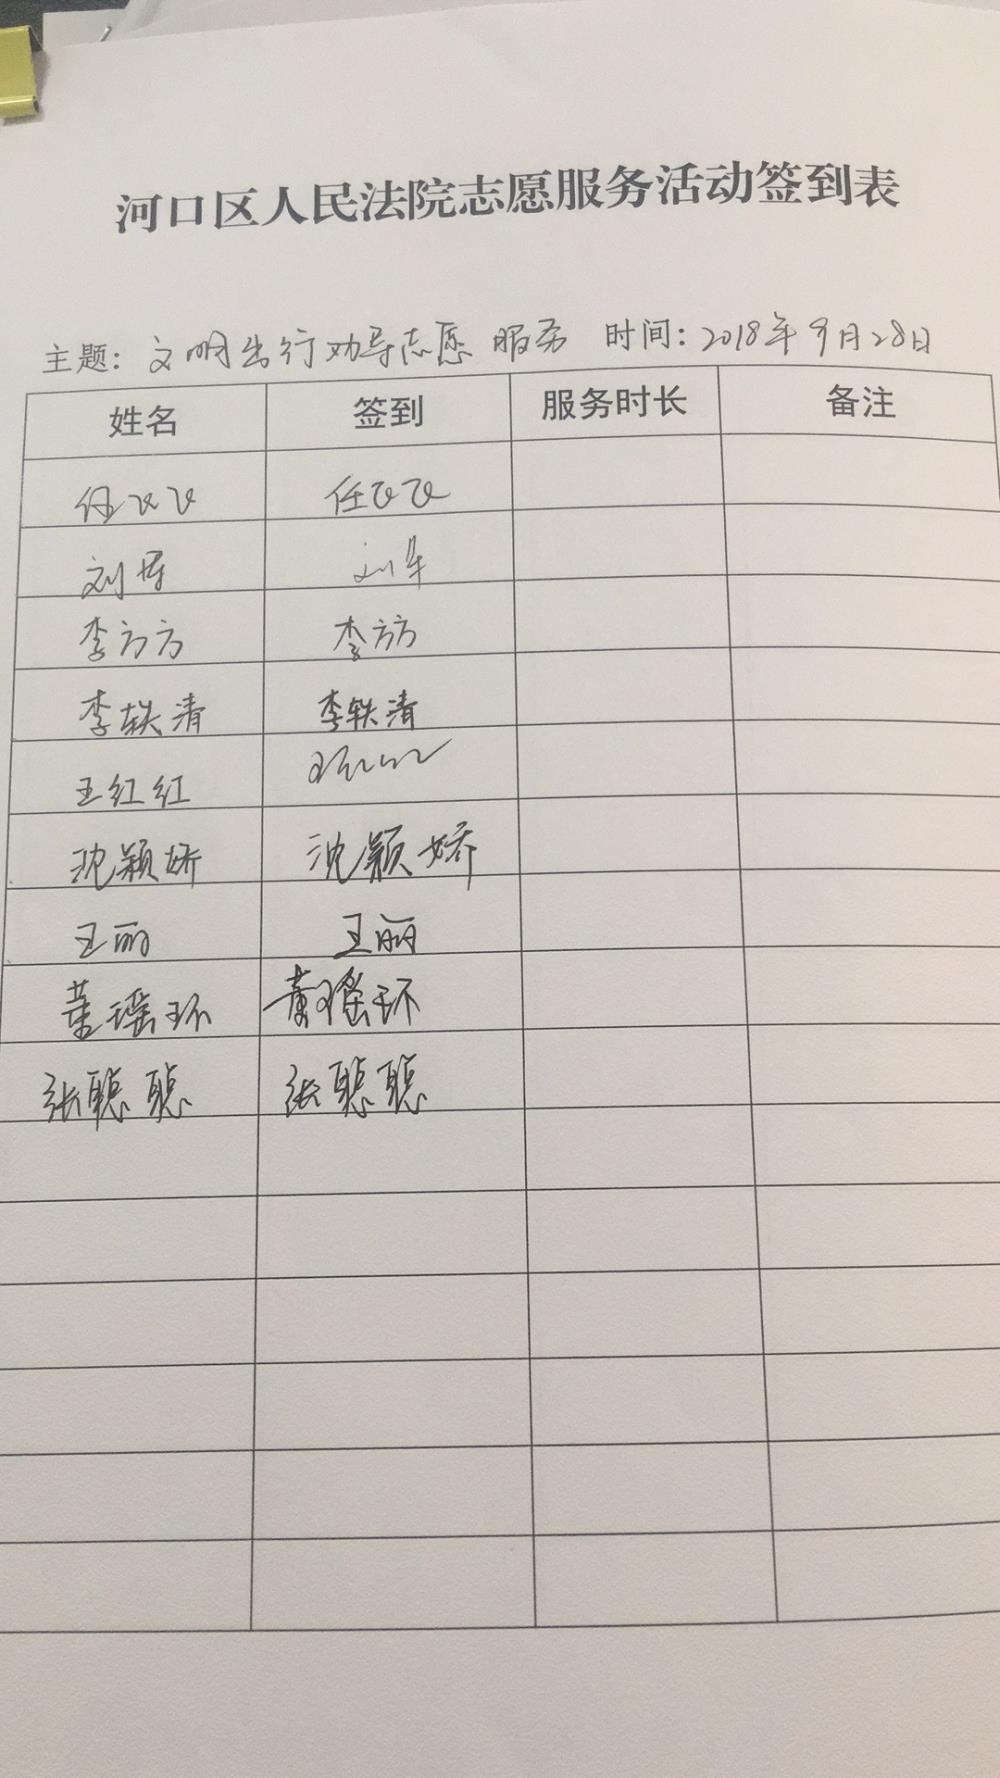 河口区人民法院志愿服务活动签到表
主题：文明出行劝导志愿服务 时间：2018年9月28日
姓名 签到 服务时长 备注
任飞飞 任飞飞
刘军 刘军
李方方 李方方
李轶清 李轶清
王红红 王红红
沈颖娇 沈颖娇
王丽 王丽
董瑶环 董瑶环
张聪聪 张聪聪